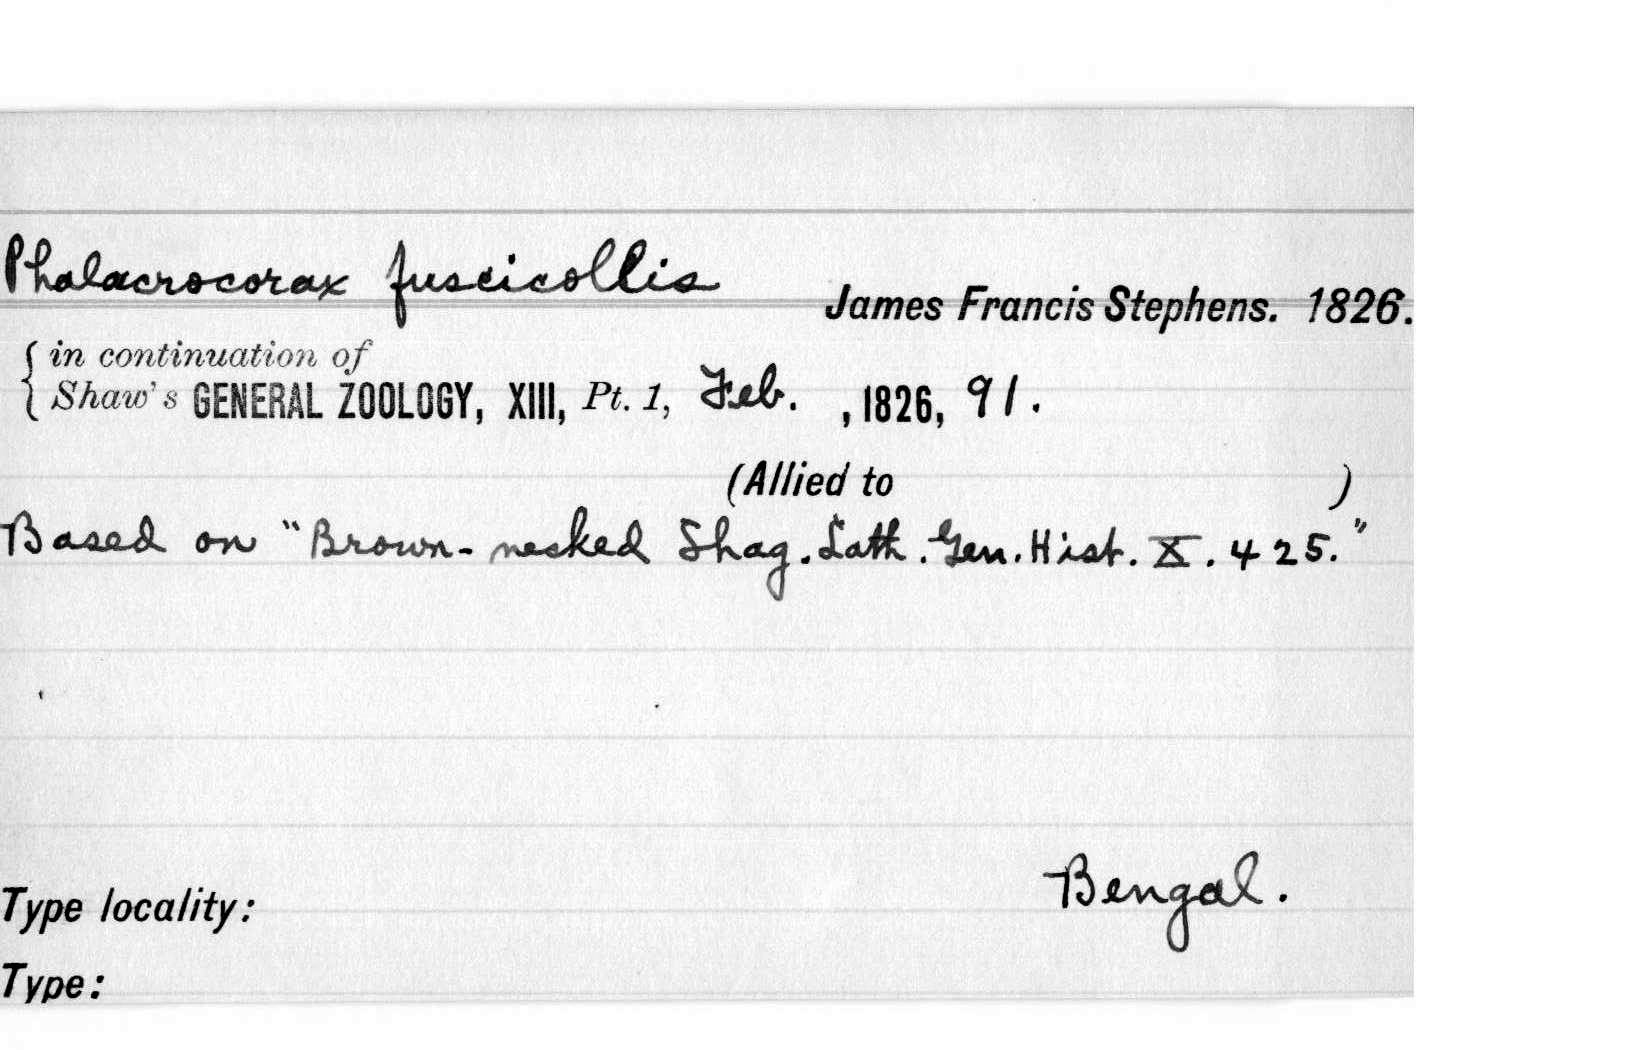 Phalacrocorax fuscicollis
James Francis Stephens. 1826.
{ in continuation of
Shaw's GENERAL ZOOLOGY, XIII, Pt. 1, Feb. , 1826, 91.
(Allied to )
Based on "Brown-necked Shag. Lath. Gen. Hist. X. 425."
Bengal.
Type locality:
Type: